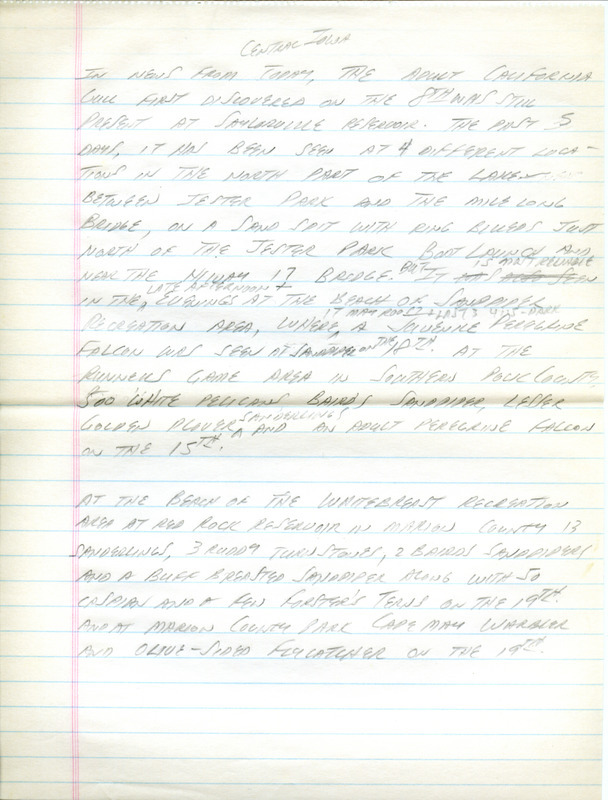 CENTRAL IOWA
IN NEWS FROM TODAY, THE ADULT CALIFORNIA
GULL FIRST DISCOVERED ON THE 8TH WAS STILL
PRESENT AT SAYLORVILLE RESERVOIR. THE PAST 5
DAYS, IT HAS BEEN SEEN AT 4 DIFFERENT LOCA-
TIONS IN THE NORTH PART OF THE LAKE
BETWEEN JESTER PARK AND THE MILE LONG
BRIDGE, ON A SAND SPIT WITH RING BILLEDS JUST
NORTH OF THE JESTER PARK BOAT LAUNCH AND
NEAR THE HIWAY 17 BRIDGE. BUT IT IS MOST RELIABLE SEEN
IN THE LATE AFTERNOON + EVENINGS AT THE BEACH OF SANDPIPER
IT MAY ROOST + LAST 3 4:15-DARK
RECREATION AREA, WHERE, A JUVENILE PEREGRINE
FALCON WAS SEEN AT SANDPIPER ON THE 18TH. AT THE
RUNNELLS GAME AREA IN SOUTHERN POLK COUNTY,
500 WHITE PELICANS BAIRD'S SANDPIPER, LESSER
GOLDEN PLOVER, SANDERLINGS AND AN ADULT PEREGRINE FALCON
ON THE 15TH.
AT THE BEACH OF THE WHITEBREAST RECREATION
AREA AT RED ROCK RESERVOIR IN MARION COUNTY 13
SANDERLINGS, 3 RUDDY TURNSTONES, 2 BAIRDS SANDPIPERS
AND A BUFF BREASTED SANDPIPER ALONG WITH 50
CASPIAN AND A FEW FORSTER'S TERNS ON THE 19TH.
AND AT MARION COUNTY PARK CAPE MAY WARBLER
AND OLIVE-SIDED FLYCATCHER ON THE 19TH.